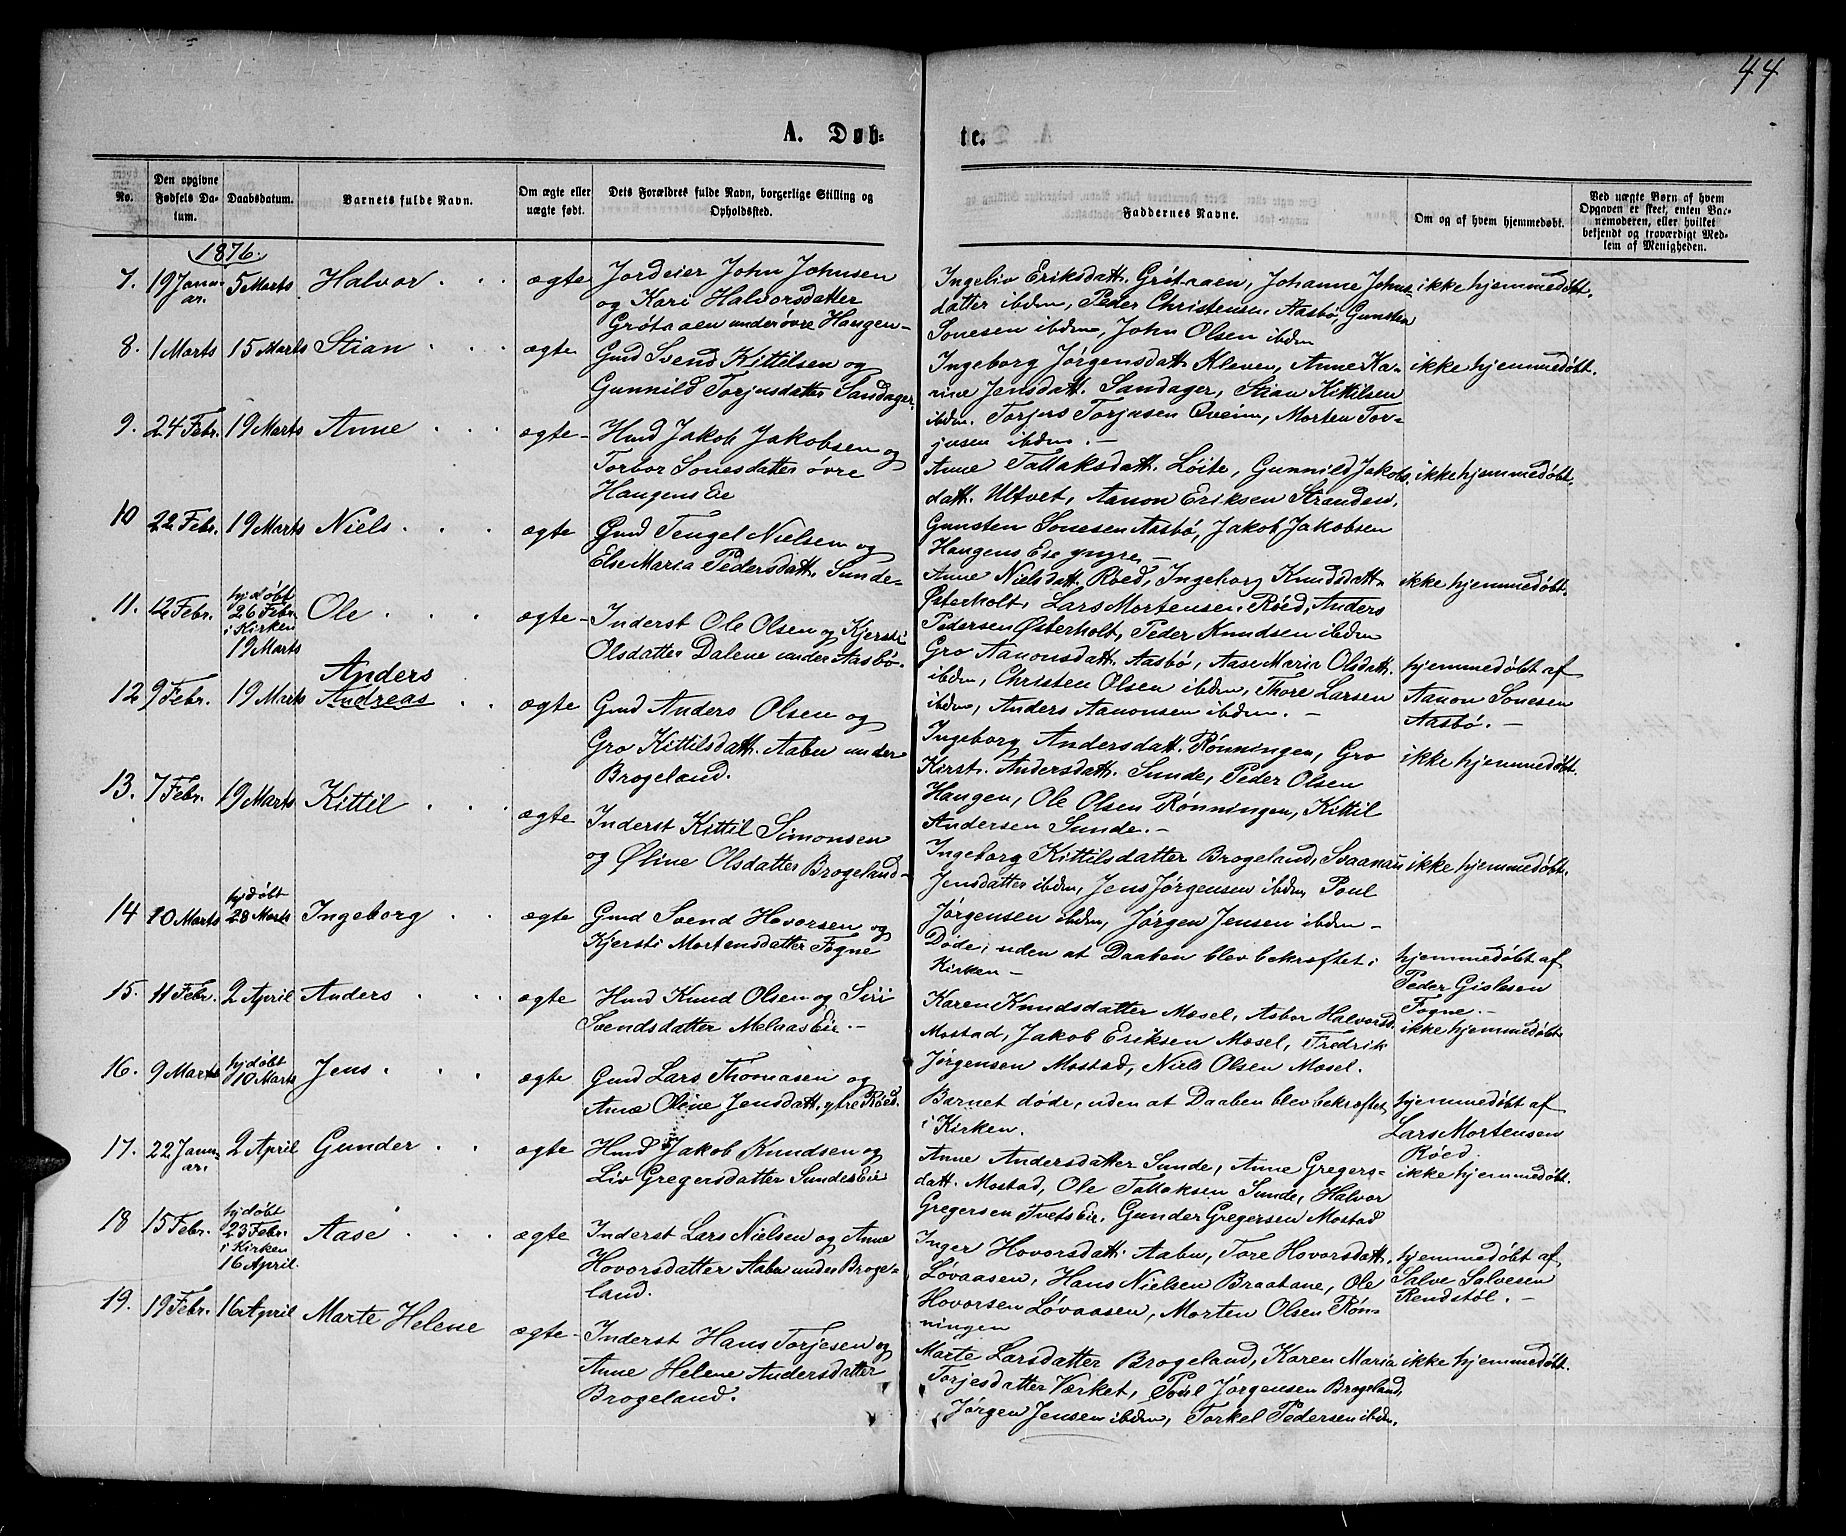 44
A. Døbte.
No.
Den opgivne Fødsels Datum.
Daabsdatum.
Barnets fulde Navn.
Om ægte eller uægte født.
Dets Forældres fulde Navn, borgerlige Stilling og Opholdssted.
Faddernes Navne.
Om og af hvem hjemmedøbt.
Ved uægte Børn af hvem Opgaven er skeet, enten Barnemoderen, eller hvilket bekjendt og troværdigt Medlem af Menigheden.
1876.
7. 19 Januar. 5 Marts Halvor ægte
Jordeier John Johnsen
og Kari Halvorsdatter
Grötaaen under övre Haugen
Ingeliv Eriksdatt. Grötaaen, Johanne Johns-
datter ibdm, Peder Christensen Aasbø, Gunsten
Sonesen ibdm, John Olsen ibdm
ikke hjemmedøbt.
8. 1 Marts 15 Marts Stian ægte
Gmd Svend Kittilsen og
Gunnild Torjusdatter Sandager.
Ingeborg Jørgensdatt. Kleven, Anne Ka-
rine Jensdatt. Sandager, Stian Kittilsen
ibdm. Torjus Torjusen Qveim, Morten Tor-
jusen ibdm. —
ikke hjemmedøbt.
9. 24 Febr. 19 Marts Anne ægte
Hmd Jakob Jakobsen og
Torbor Sonesdatter övre
Haugens Eie
Anne Tallaksdatt. Löite, Gunnild Jakobs
datt. Ultvet, Aanon Eriksen Stranden,
Gunsten Sonesen Aasbø, Jakob Jakobsen
Haugens Eie yngre —
ikke hjemmedøbt.
10 22 Febr. 19 Marts Niels ægte
Gmd Tengel Nielsen og
Else Maria Pedersdatt. Sunde
Anne Nielsdatt. Røed, Ingeborg Knudsdatt.
Østerholt, Lars Mortensen Røed, Anders
Pedersen Østerholt, Peder Knudsen ibdm
ikke hjemmedøbt.
11. 12 Febr. hjdøbt
26 Febr.
i Kirken
19 Marts
Ole ægte
Inderst Ole Olsen og Kjersti
Olsdatter Dalene under Aasbø.
Gro Aanonsdatt. Aasbø, Aase Maria Olsdatt.
ibdm, Christen Olsen ibdm, Thore Larsen
ibdm, Anders Aanonsen ibdm. —
hjemmedøbt af
Aanon Sonesen
Aasbø. —
12 9 Febr. 19 Marts
Anders
Andreas ægte
Gmd Anders Olsen og
Gro Kittilsdatt. Aabu under
Brogeland.
Ingeborg Andersdatt. Rønningen, Gro
Kirst. Andersdatt. Sunde, Peder Olsen
Haugen, Ole Olsen Rønningen, Kittil
Andersen Sunde. —
ikke hjemmedøbt.
13. 7 Febr. 19 Marts Kittil ægte
Inderst Kittil Simonsen
og Øline Olsdatter Brogeland
Ingeborg Kittilsdatter Brogeland, Svaanau
Jensdatter ibdm, Jens Jørgensen ibdm, Poul
Jørgensen ibdm, Jørgen Jensen ibdm —
ikke hjemmedøbt.
14 10 Marts hjdøbt
28 Marts Ingeborg ægte
Gmd Svend Hovorsen og
Kjersti Mortensdatter Fogne
Døde, uden at Daaben blev bekræftet i
Kirken —
hjemmedøbt af
Peder Gislesen
Fogne. —
15. 11 Febr. 2 April Anders ægte
Hmd Knud Olsen og Siri
Svendsdatter Melaas Eie. —
Karen Knudsdatter Mosel, Asbor Halvorsd.
Mostad, Jakob Eriksen Mosel, Fredrik
Jørgensen Mostad, Niels Olsen Mosel.
ikke hjemmedøbt.
16. 9 Marts hjdøbt
10 Marts Jens ægte
Gmd Lars Thomasen og
Anne Oline Jensdatt. ytre Røed.
Barnet døde, uden at Daaben blev bekræftet
i Kirken.
hjemmedøbt af
Lars Mortensen
Røed.
17. 22 Januar. 2 April Gunder ægte
Hmd Jakob Knudsen og
Liv Gregersdatter Sundes Eie
Anne Andersdatter Sunde, Anne Gregers-
datt. Mostad, Ole Tallaksen Sunde, Halvor
Gregersen Tvets Eie. Gunder Gregersen Mostad
ikke hjemmedøbt.
18 15 Febr. hjdøbt
23 Febr.
i Kirken
16 April.
Aase ægte
Inderst Lars Nielsen og Anne
Hovorsdatter Aabu under Broge-
land.
Inger Hovorsdatt. Aabu, Tore Hovorsdatt.
Løvaasen, Hans Nielsen Braatane, Ole
Hovorsen Løvaasen, Morten Olsen Røn-
ningen
hjemmedøbt af
Salve Salvesen
Rendstöl. —
19. 19 Febr. 16 April Marte Helene ægte
Inderst Hans Torjesen og
Anne Helene Andersdatter
Brogeland.
Marte Larsdatter Brogeland, Karen Maria
Torjesdatter Værket, Poul Jørgensen Brogeland,
Jørgen Jensen ibdm, Torkel Pedersen ibdm.
ikke hjemmedøbt.